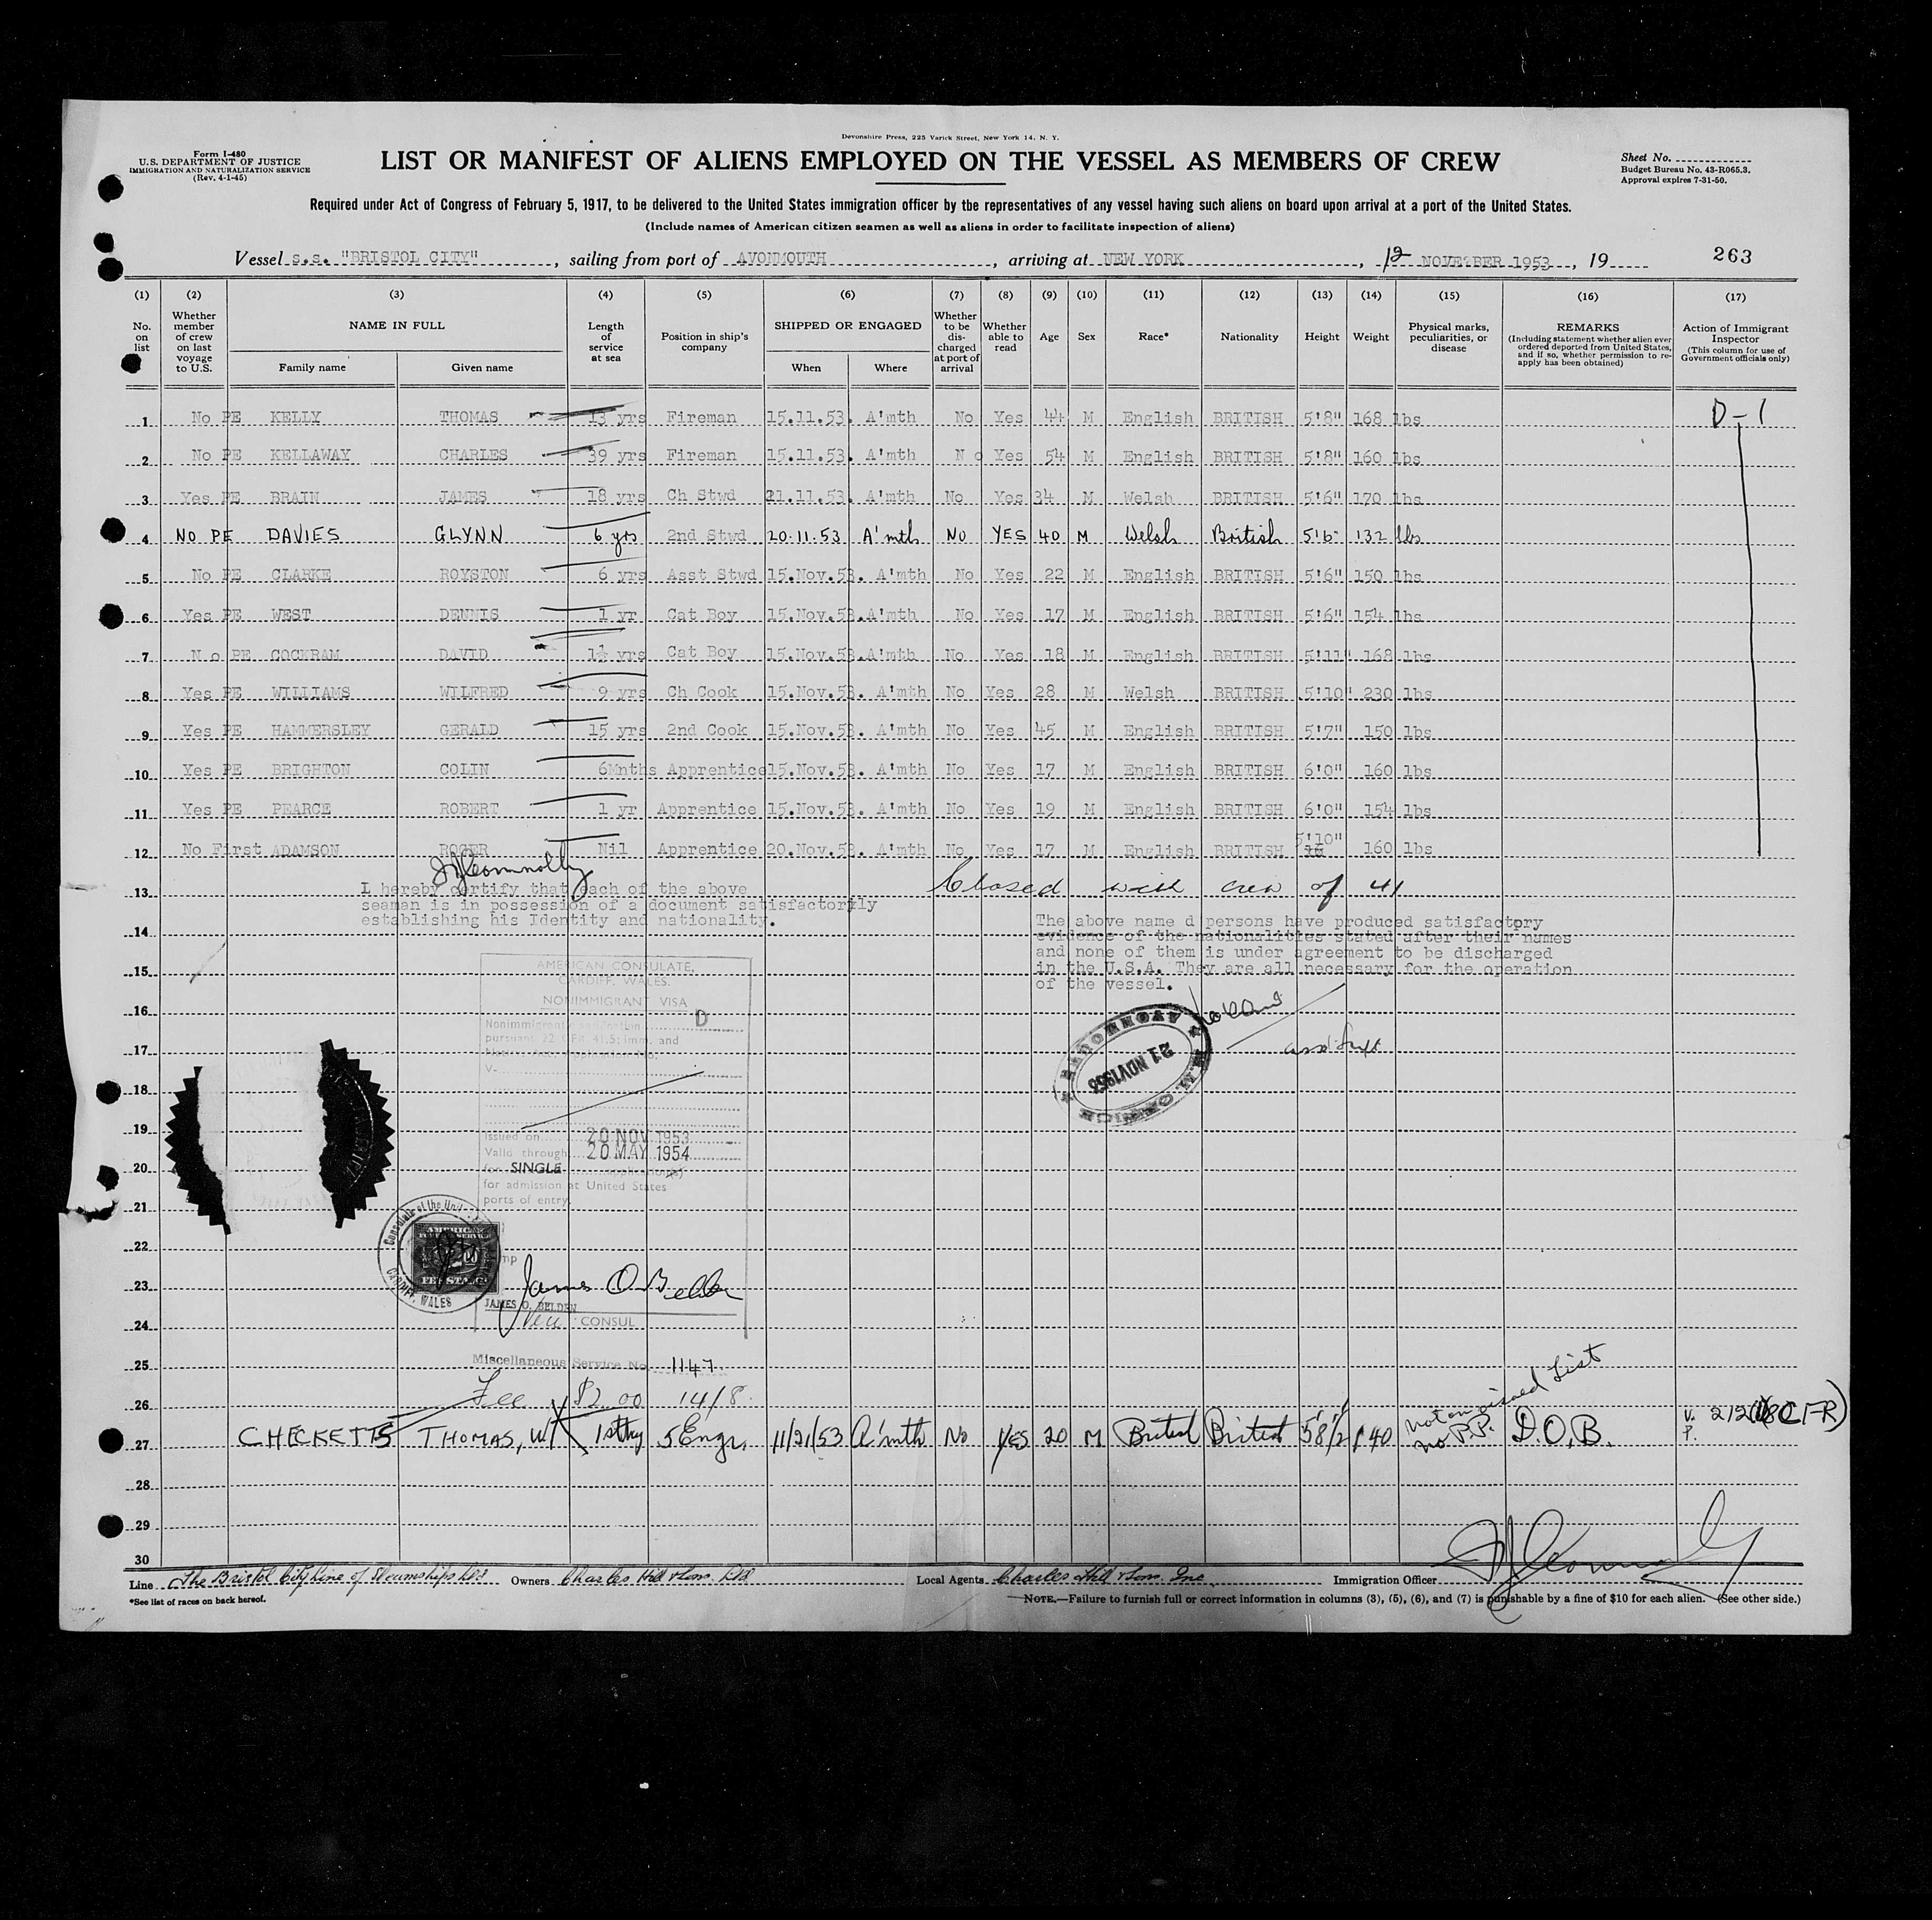 Devonshire Press, 225 Varick Street, New York 14, N. Y.
Form I-480
U.S. DEPARTMENT OF JUSTICE
IMMIGRATION AND NATURALIZATION SERVICE
(Rev. 4-1-45)
LIST OR MANIFEST OF ALIENS EMPLOYED ON THE VESSEL AS MEMBERS OF CREW
Sheet No.
Budget Bureau No. 43-R065.3.
Approval expires 7-31-50.
Required under Act of Congress of February 5, 1917, to be delivered to the United States immigration officer by the representatives of any vessel having such aliens on board upon arrival at a port of the United States.
(Include names of American citizen seamen as well as aliens in order to facilitate inspection of aliens)
Vessel s.s. "BRISTOL CITY", sailing from port of AVONMOUTH, arriving at NEW YORK, NOVEMBER 1953, 19 263
(1) (2) (3) (4) (5) (6) (7) (8) (9) (10) (11) (12) (13) (14) (15) (16) (17)
No. on list
Whether member of crew on last voyage to U.S.
NAME IN FULL
Family name Given name
Length of service at sea
Position in ship's company
SHIPPED OR ENGAGED
When Where
Whether to be discharged at port of arrival
Whether able to read
Age
Sex
Race*
Nationality
Height
Weight
Physical marks, peculiarities, or disease
REMARKS
(Including statement whether alien ever ordered deported from United States, and if so, whether permission to reapply has been obtained)
Action of Immigrant Inspector
(This column for use of Government officials only)
1 No PE KELLY THOMAS 13 yrs Fireman 15.11.53. A'mth No Yes 44 M English BRITISH 5'8" 168 lbs D-1
2 No PE KELLAWAY CHARLES 39 yrs Fireman 15.11.53. A'mth N o Yes 54 M English BRITISH 5'8" 160 lbs
3 Yes PE BRAIN JAMES 18 yrs Ch Stwd 21.11.53. A'mth No Yes 34 M Welsh BRITISH 5'6" 170 lbs
4 NO PE DAVIES GLYNN 6 yrs 2nd Stwd 20.11.53 A'mth NO YES 40 M Welsh British 5'6" 132 lbs
5 No PE CLARKE ROYSTON 6 yrs Asst Stwd 15.Nov.53. A'mth No Yes 22 M English BRITISH 5'6" 150 lbs
6 Yes PE WEST DENNIS 1 yr Cat Boy 15.Nov.53.A'mth No Yes 17 M English BRITISH 5'6" 154 lbs
7 N o PE COCKRAM DAVID 1½ yrs Cat Boy 15.Nov.53.A'mth No Yes 18 M English BRITISH 5'11" 168 lbs
8 Yes PE WILLIAMS WILFRED 9 yrs Ch Cook 15.Nov.53. A'mth No Yes 28 M Welsh BRITISH 5'10" 230 lbs
9 Yes PE HAMMERSLEY GERALD 15 yrs 2nd Cook 15.Nov.53. A'mth No Yes 45 M English BRITISH 5'7" 150 lbs
10 Yes PE BRIGHTON COLIN 6Mnths Apprentice 15.Nov.53. A'mth No Yes 17 M English BRITISH 6'0" 160 lbs
11 Yes PE PEARCE ROBERT 1 yr Apprentice 15.Nov.53. A'mth No Yes 19 M English BRITISH 6'0" 154 lbs
12 No First ADAMSON ROGER Nil Apprentice 20.Nov.53. A'mth No Yes 17 M English BRITISH 5'10" 160 lbs
J Connolly
13 Closed with crew of 41
I hereby certify that each of the above
seaman is in possession of a document satisfactorily
establishing his Identity and nationality.
14
The above name d persons have produced satisfactory
evidence of the nationalities stated after their names
and none of them is under agreement to be discharged
in the U.S.A. They are all necessary for the operation
of the vessel.
15
AMERICAN CONSULATE,
CARDIFF, WALES.
NONIMMIGRANT VISA
16
Nonimmigrant classification D
pursuant 22 CFR 41.5; imm. and
Natl'y Act, Application No.
V-
AVONMOUTH
M.M. OFFICE
21 NOV 1953
Asst Supt
17
18
19
Issued on 20 NOV 1953
Valid through 20 MAY 1954
for SINGLE application(s)
for admission at United States
ports of entry.
20
21
22
Consulate of the Unit
CARDIFF, WALES
AMERICAN
FOREIGN SERVICE
FEE STAMP
23
James O Belden
JAMES O. BELDEN
Vice CONSUL
24
25
Miscellaneous Service No. 1147
26 Fee $2.00 14/8
Not on visaed List
No P.P.
27 CHECKETTS THOMAS, W. 1st trip 5 Engr. 11/21/53 A'mth No YES 20 M British British 5'8½ 140 D.O.B. V. P. 212
28
29
30
Line The Bristol City Line of Steamships Ltd Owners Charles Hill & Sons. Ltd Local Agents Charles Hill & Sons. Inc Immigration Officer J Connolly
*See list of races on back hereof.
NOTE.—Failure to furnish full or correct information in columns (3), (5), (6), and (7) is punishable by a fine of $10 for each alien. (See other side.)